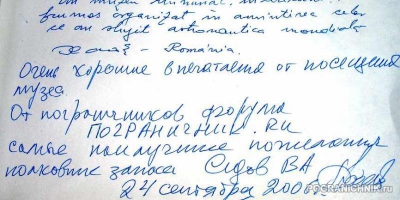 un muzeu minunat,
frumos organizat, în amintirea celor
ce au slujit astronautica mondială
România.
Очень хорошие впечатления от посещения
музея
От пограничников форума
ПОГРАНИЧНИК.RU
самые наилучшие пожелания
полковник запаса Седов ВА
24 сентября
POGRANICHNIK.ru